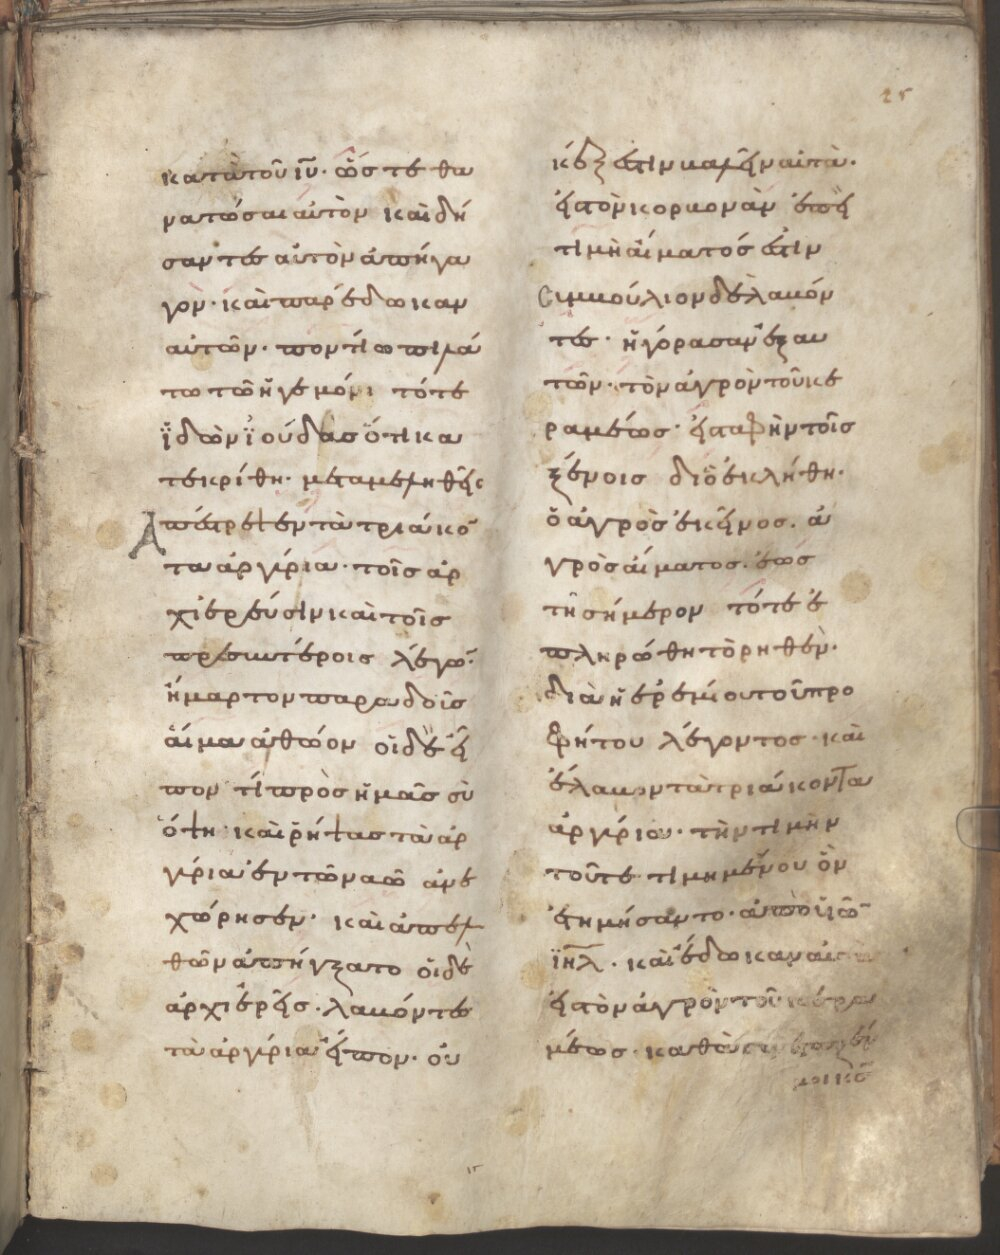 25
κατὰ τοῦ ἰυ̅· ὥστε θα
νατῶσαι αὐτὸν καὶ δή
σαντες αὐτὸν ἀπήγα
γον· καὶ παρέδωκαν
αὐτῶν· ποντίω πιλά
τω τῶ ἡγεμόνι τότε
ἰδὼν ἰούδας ὅτι κα
τεκρίθη· μεταμεληθεὶς
ἀπέστρεψεν τὰ τριάκο̅
τα ἀργύρια· τοῖς ἀρ
χιερεύσιν καὶ τοῖς
πρεσβυτέροις λέγω̅·
ἥμαρτον παραδοὶς
αἷμα ἀθώον οἱ δὲ εἶ
πον τί πρὸς ἡμᾶς σὺ
ὄψη· καὶ ῥήψας τὰ ἀρ
γύρια ἐν τῶ ναῶ ἀνε
χώρησεν· καὶ ἀπελ
θὼν ἀπήγξατο οἱ δὲ
ἀρχιερεῖς· λαβόντες
τὰ ἀργύρια εἶπον· οὐ
κἔξεστιν βαλεῖν αὐτὰ·
εἰς τὸν κορβονὰν ἐπεὶ
τιμὴ αἵματός ἐστιν
Συμβούλιον δὲ λαβόν
τες· ἠγόρασαν ἐξ αυ
τῶν· τὸν ἀγρὸν τοῦ κε
ραμέως· εἰς ταφὴν τοῖς
ξένοις διὸ ἐκλήθη·
ὁ ἀγρὸς ἐκεῖνος· ἀ
γρὸς αἵματος· ἕως
τῆ σήμερον τότε ἐ
πληρώθη τὸ ρηθὲν·
διὰ ἠερεμίου τοῦ προ
φήτου λέγοντος· καὶ
ἔλαβον τὰ τριάκοντα
ἀργύρια· τὴν τιμὴν
τοῦ τετιμημένου ὃν
ἐτημήσαντο· ἀπὸ ὑἱῶ̅
ἰη̅λ· καὶ ἔδωκαν αὐτὰ
εἰς τὸν ἀγρὸν τοῦ κερα
μέως· καθὰ συνέταξέν
μοι κς̅